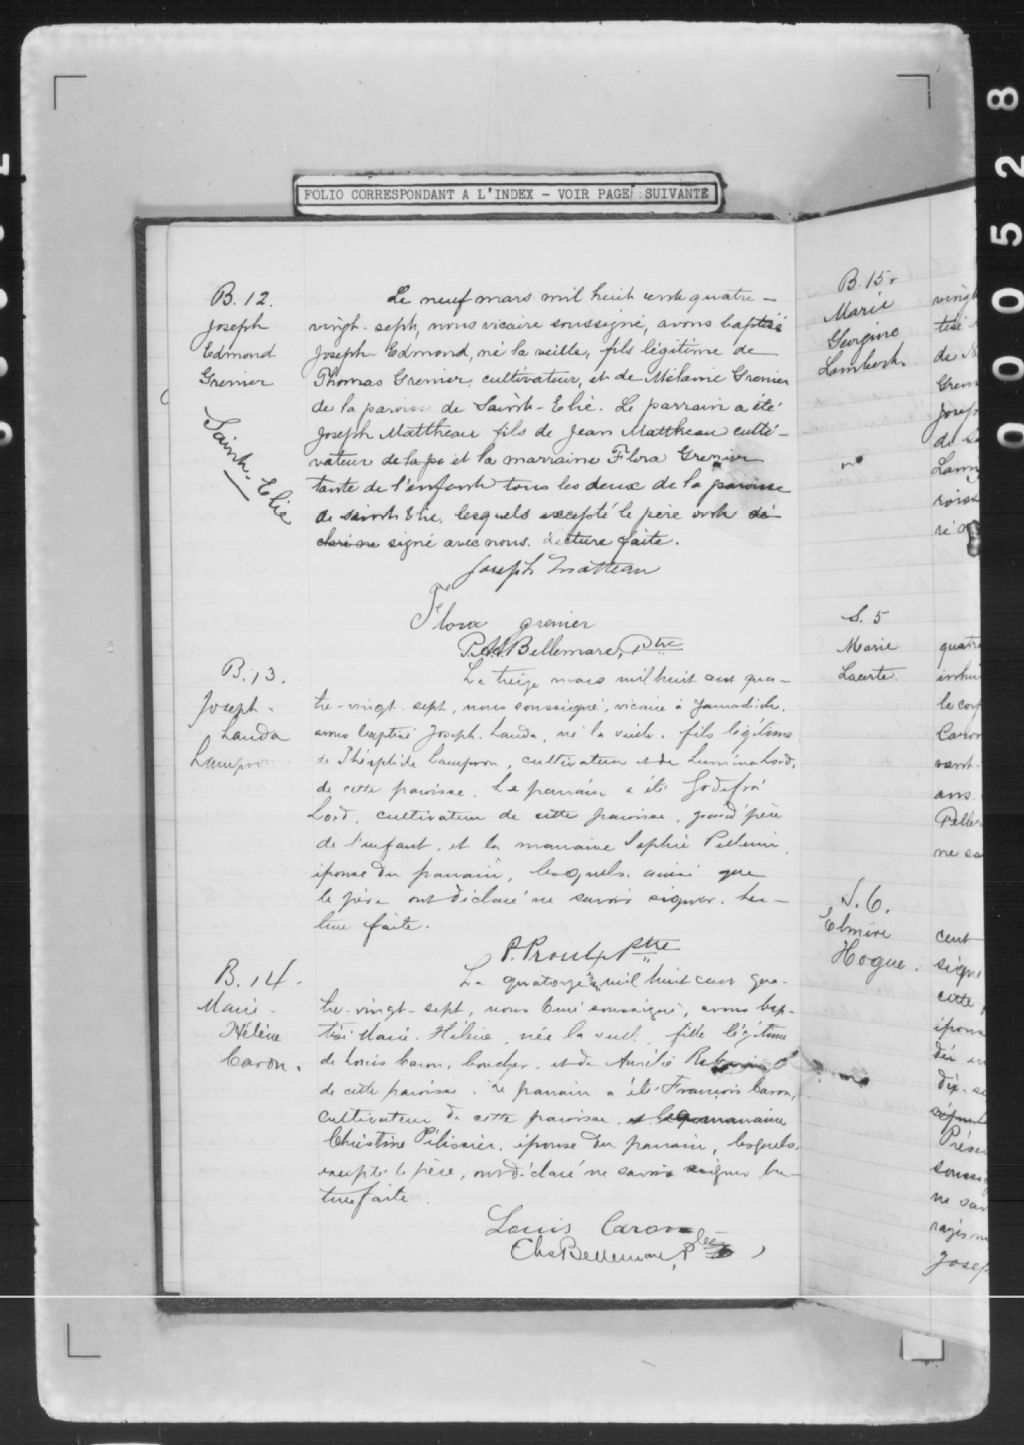 FOLIO CORRESPONDANT A L'INDEX - VOIR PAGE SUIVANTE
000528
B. 12.
Joseph
Edmond
Grenier
Sainte-Elie
Le neuf mars mil huit cent quatre-
vingt-sept, nous vicaire soussigné, avons baptisé
Joseph Edmond, né la veille, fils légitime de
Thomas Grenier, cultivateur, et de Mélanie Grenier
de la paroisse de Saint-Elie. Le parrain a été
Joseph Mattheau fils de Jean Mattheau culti-
vateur de la pa et la marraine Flora Grenier
tante de l'enfant tous les deux de la paroisse
de Saint Elie, lesquels excepté le père ont dé-
claré ne signé avec nous. Lecture faite.
Joseph Matteau
Flora grenier
Bellemare, Ptre
B. 13.
Joseph-
Landa
Lampron
Le treize mars mil huit cent qua-
tre-vingt-sept, nous soussigné, vicaire à Yamachiche,
avons baptisé Joseph-Landa, né la veille, fils légitime
de Théophile Lampron, cultivateur et de Lumina Lord,
de cette paroisse. Le parrain a été Godefroi
Lord, cultivateur de cette paroisse, grand'père
de l'enfant, et la marraine Sophie Pellerin,
épouse du parrain, lesquels ainsi que
le père ont déclaré ne savoir signer. Lec-
ture faite.
P. Proulx Ptre
B. 14.
Marie-
Hélène
Caron.
Le quatorze mil huit cent qua-
tre-vingt-sept, nous Curé soussigné, avons bap-
tisé Marie-Hélène, née la veille, fille légitime
de Louis Caron, boucher, et de Aurélie
de cette paroisse. Le parrain a été François Caron,
cultivateur de cette paroisse, et la marraine
Christine Pélissier, épouse du parrain, lesquels
excepté le père, ont déclaré ne savoir signer. Lec-
ture faite.
Louis Caron
Chs Bellemare, P
B. 15.
Marie
Georgine
Lambert.
S. 5
Marie
Lacerte.
S. 6.
Elmire
Hogue.
vingt
tisé
de
Gren
Joseph
de
quatre
inhu
le cor
Caron
vant
ans.
Peller
ne sa
cent
sign
cette
épous
dix-
Prése
souss
ne sav
Josep